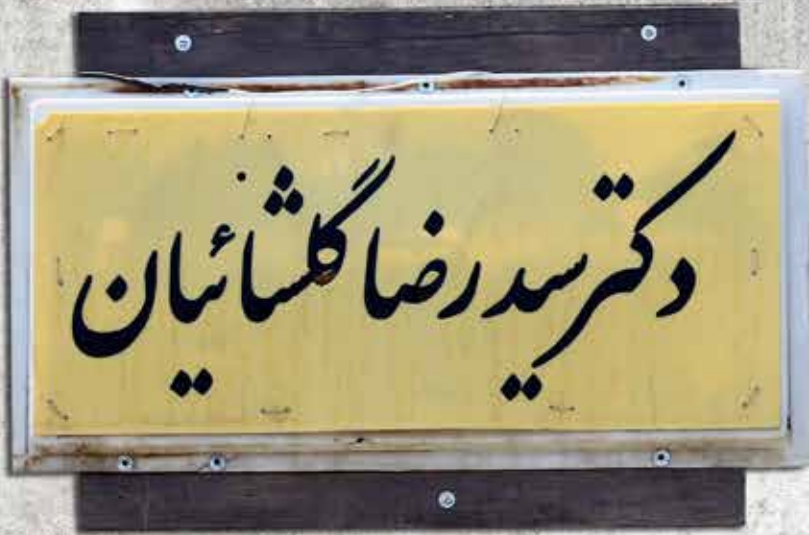 دکتر سید رضا گلشائیان